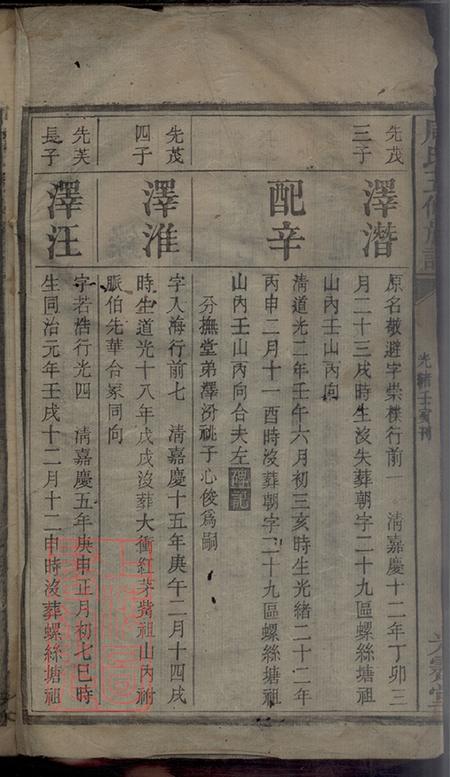 先茂
三子
澤潛
原名敬避字崇樸行前一　清嘉慶十二年丁卯三
月二十三戌時生沒失葬朝字二十九區螺絲塘祖
山內壬山丙向
配辛
清道光二年壬午六月初三亥時生光緒二十二年
丙申二月十一酉時沒葬朝字二十九區螺絲塘祖
山內壬山丙向合夫左碑記
分撫堂弟澤汾祧子心俊爲嗣
先茂
四子
澤淮
字入海行前七　清嘉慶十五年庚午二月十四戌
時生道光十八年戊戌沒葬大衝紅茅觜祖山內祔
脈伯先華合冢同向
先芙
長子
澤汪
字若浩行光四　清嘉慶五年庚申正月初七巳時
生同治元年壬戌十二月十二申時沒葬螺絲塘祖